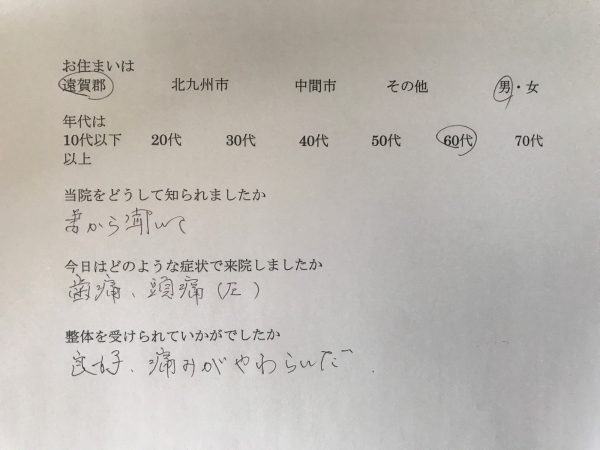 お住まいは
遠賀郡 北九州市 中間市 その他 男・女
年代は
10代以下 20代 30代 40代 50代 60代 70代
以上
当院をどうして知られましたか
昔から聞いて
今日はどのような症状で来院しましたか
歯痛、頭痛(左)
整体を受けられていかがでしたか
良好、痛みがやわらいだ.